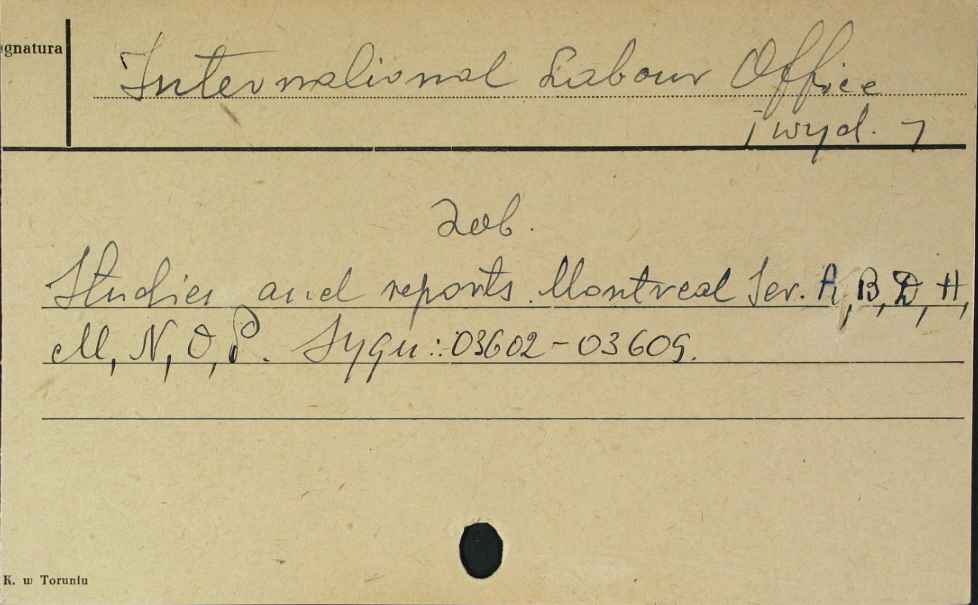 ignatura
International Labour Office
[wyd.]
Zob.
Studies and reports. Montreal Ser. A, B, D, H,
M, N, O, P. Sygn.: 03602-03609.
K. w Toruniu